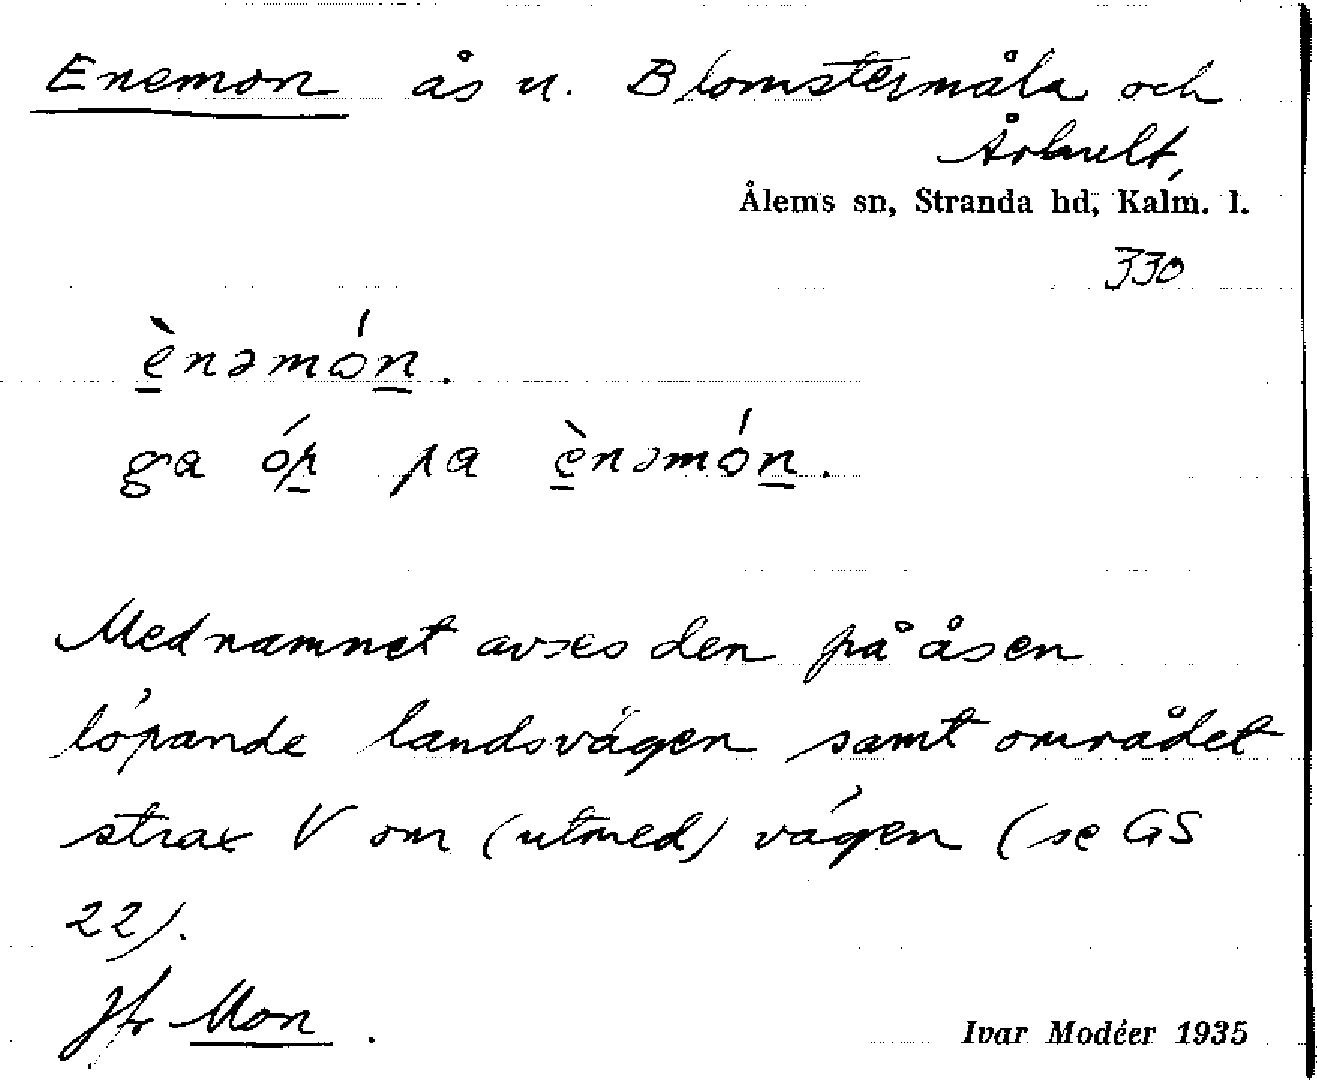 Enemon ås u. Blomstermåla och
Årbuelt,
Ålems sn, Stranda hd, Kalm. l.
330
ènəmón.
ga óp pa ènəmón.
Med namnet avses den på åsen
löpande landsvägen samt området
strax V om (utmed) vägen (se GS
22).
Jfr Mon.
Ivar Modéer 1935